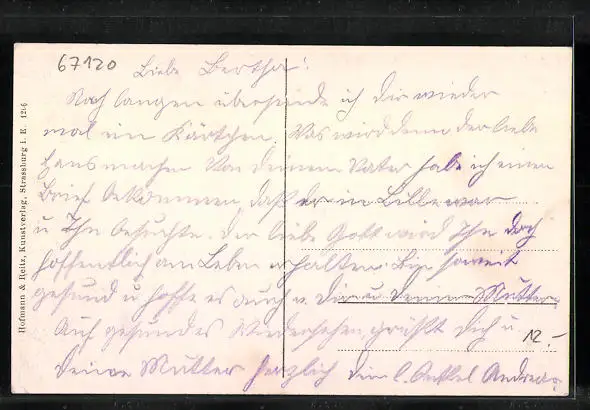 67120
Liebe Bertha!
Nach langen übersende ich Dir wieder
mal ein Kärtchen. Was wird denn der liebe
Hans machen Von deinem Vater habe ich einen
Brief bekommen, daß er in Lille war
u Ihn besuchte. Der liebe Gott wird Ihn doch
hoffentlich am Leben erhalten. Bin soweit
gesund u hoffe es auch v. Dir u deiner Mutter.
Auf gesundes Wiedersehen grüßt Dich u.
Deine Mutter herzlich dein l. Onkel Andreas
12.-
Hofmann & Reitz, Kunstverlag, Strassburg i. E. 1256